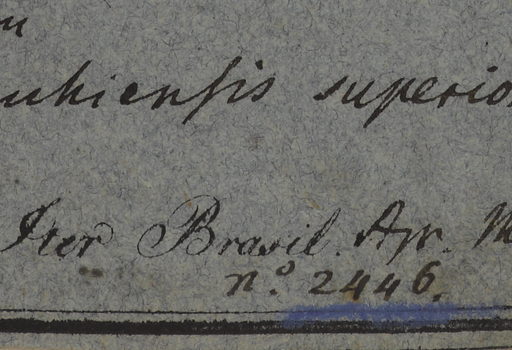 uhiensis superior
Iter Brasil. Apr. M
n.o 2446.